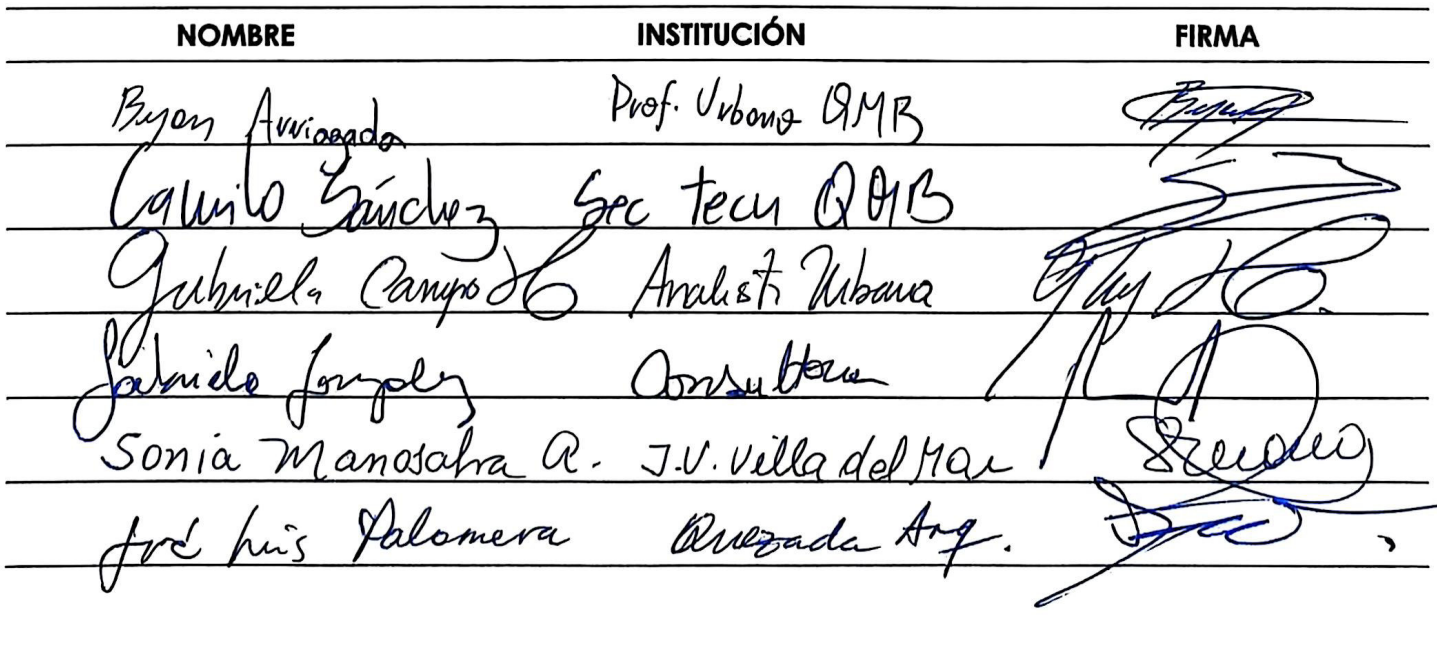 NOMBRE INSTITUCIÓN FIRMA
Byon Arriagada Prof. Urbano QMB
Camilo Sánchez Sec Tecn QMB
Gabriella Campod Analista Urbana
Gabriela González Consultora
Sonia Manosalva R. J.V. Villa del Mar
José Luis Palomera Quezada Arq.